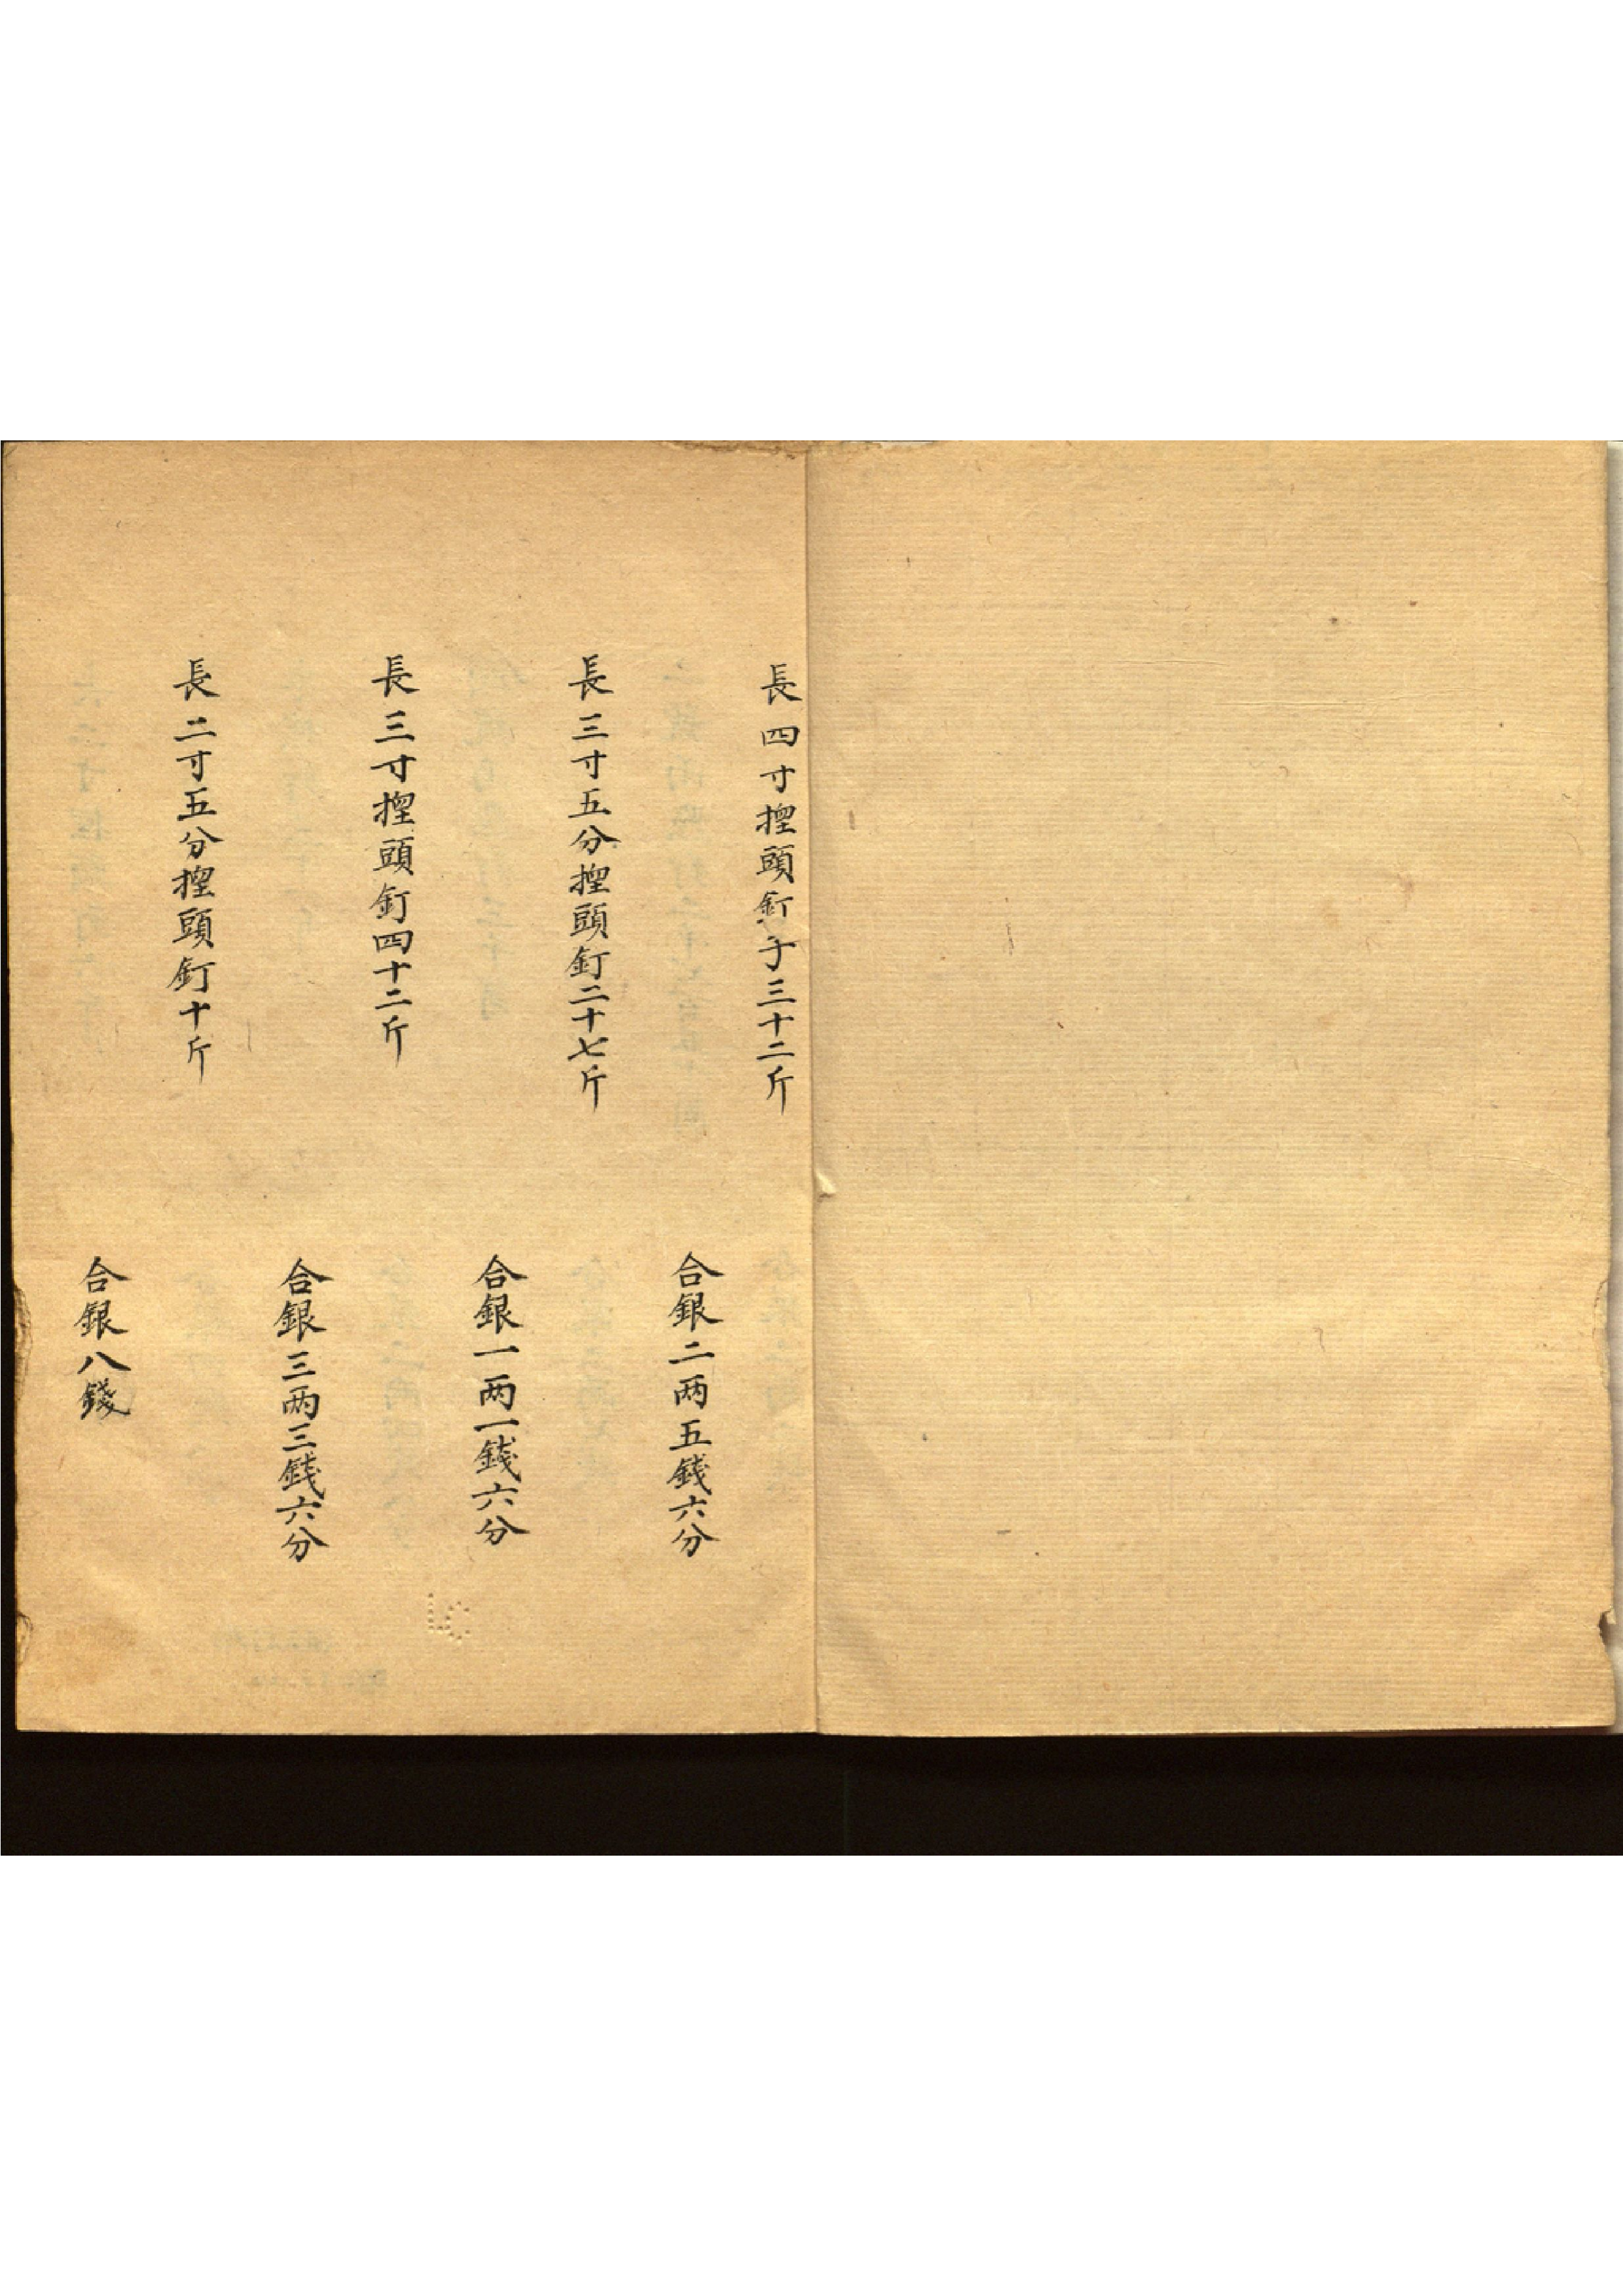 長四寸揑頭釘子三十二斤
合銀二两五錢六分
長三寸五分揑頭釘二十七斤
合銀一两一錢六分
長三寸揑頭釘四十二斤
合銀三两三錢六分
長二寸五分揑頭釘十斤
合銀八錢
LC